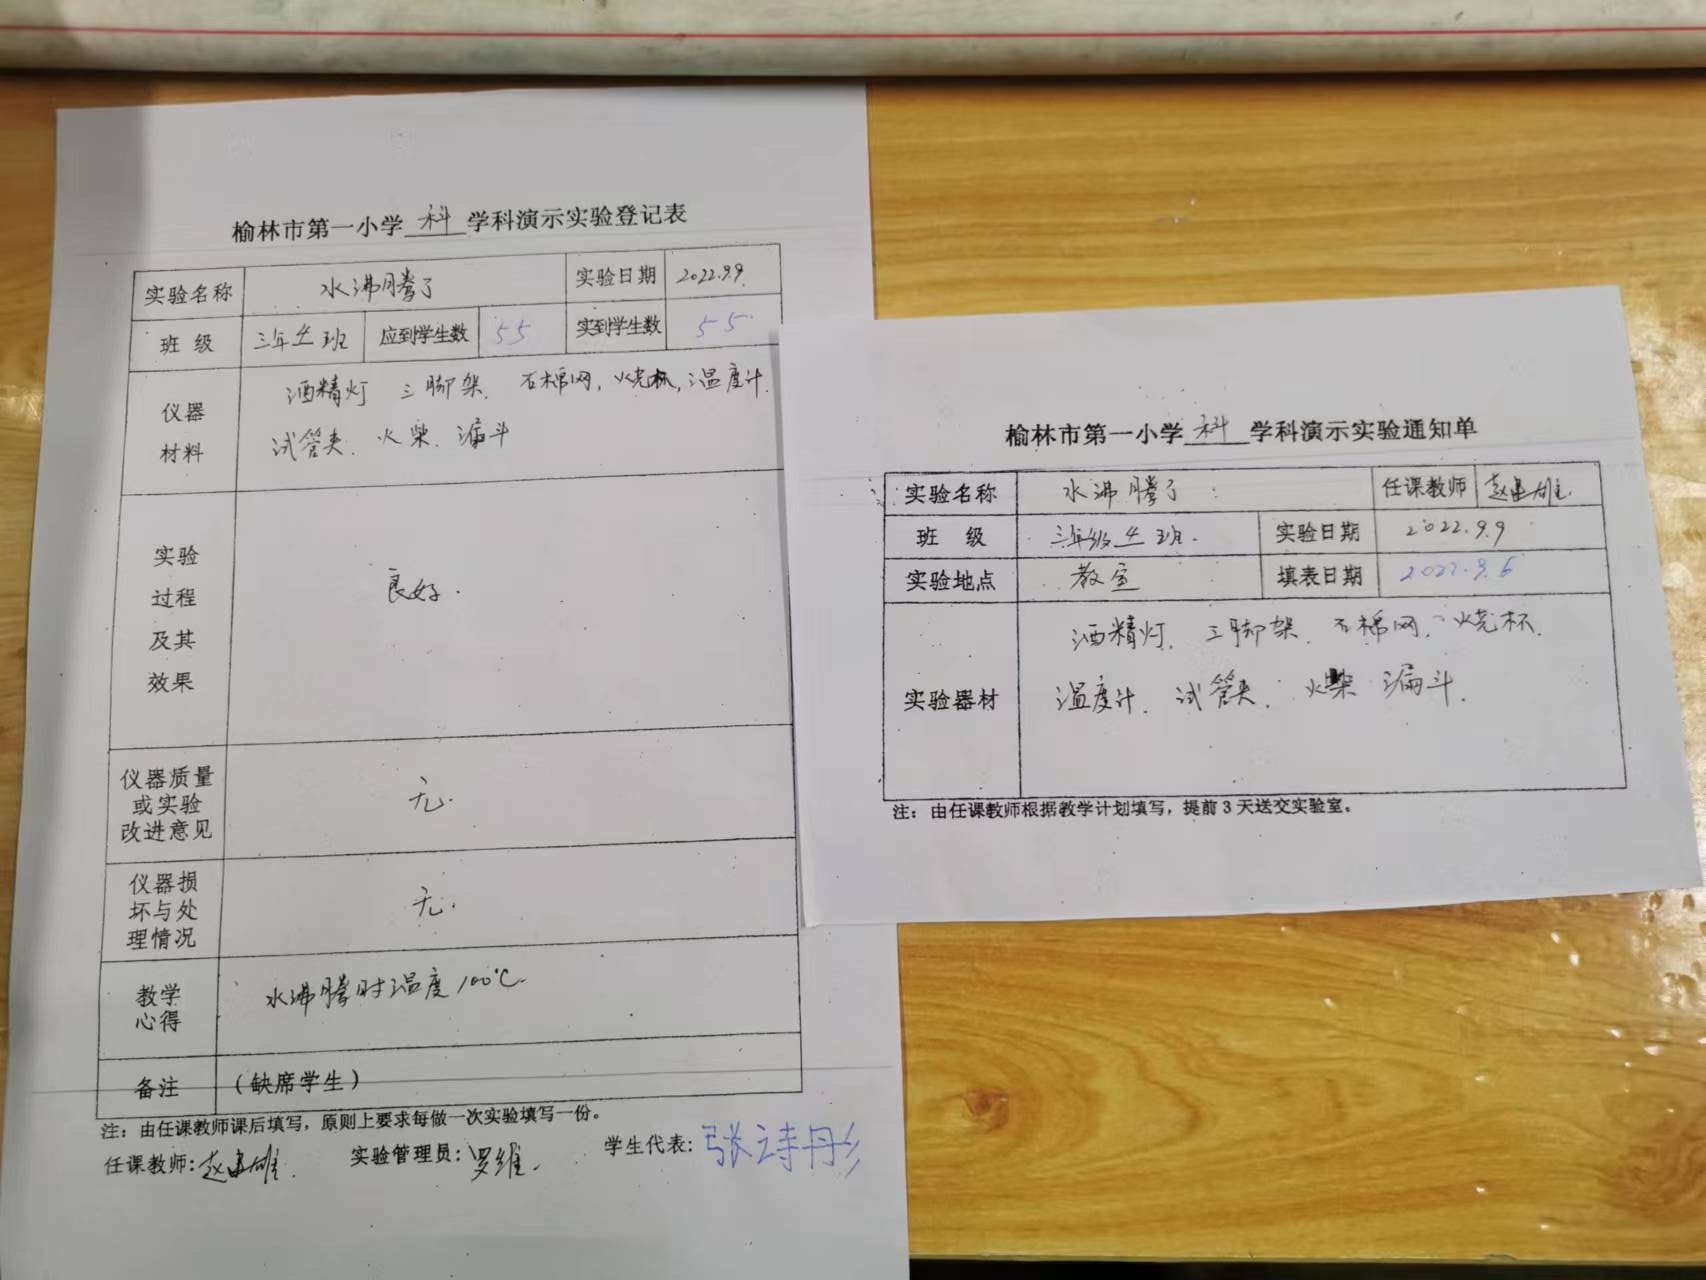 榆林市第一小学 科 学科演示实验登记表
实验名称 水沸腾了 实验日期 2022.9.9
班 级 三年4班 应到学生数 55 实到学生数 55
仪器材料 酒精灯 三脚架、石棉网,烧杯,温度计、
试管夹、火柴、漏斗
实验
过程
及其
效果
良好.
仪器质量
或实验
改进意见
无.
仪器损
坏与处
理情况
无.
教学
心得
水沸腾时温度100℃
备注 (缺席学生)
注:由任课教师课后填写,原则上要求每做一次实验填写一份。
任课教师:赵建雄. 实验管理员:罗维. 学生代表:张诗彤
榆林市第一小学 科 学科演示实验通知单
实验名称 水沸腾了 任课教师 赵建雄.
班 级 三年级4班. 实验日期 2022.9.9
实验地点 教室 填表日期 2022.9.6
实验器材 酒精灯、三脚架、石棉网、烧杯、
温度计、试管夹、火柴 漏斗.
注:由任课教师根据教学计划填写,提前3天送交实验室。